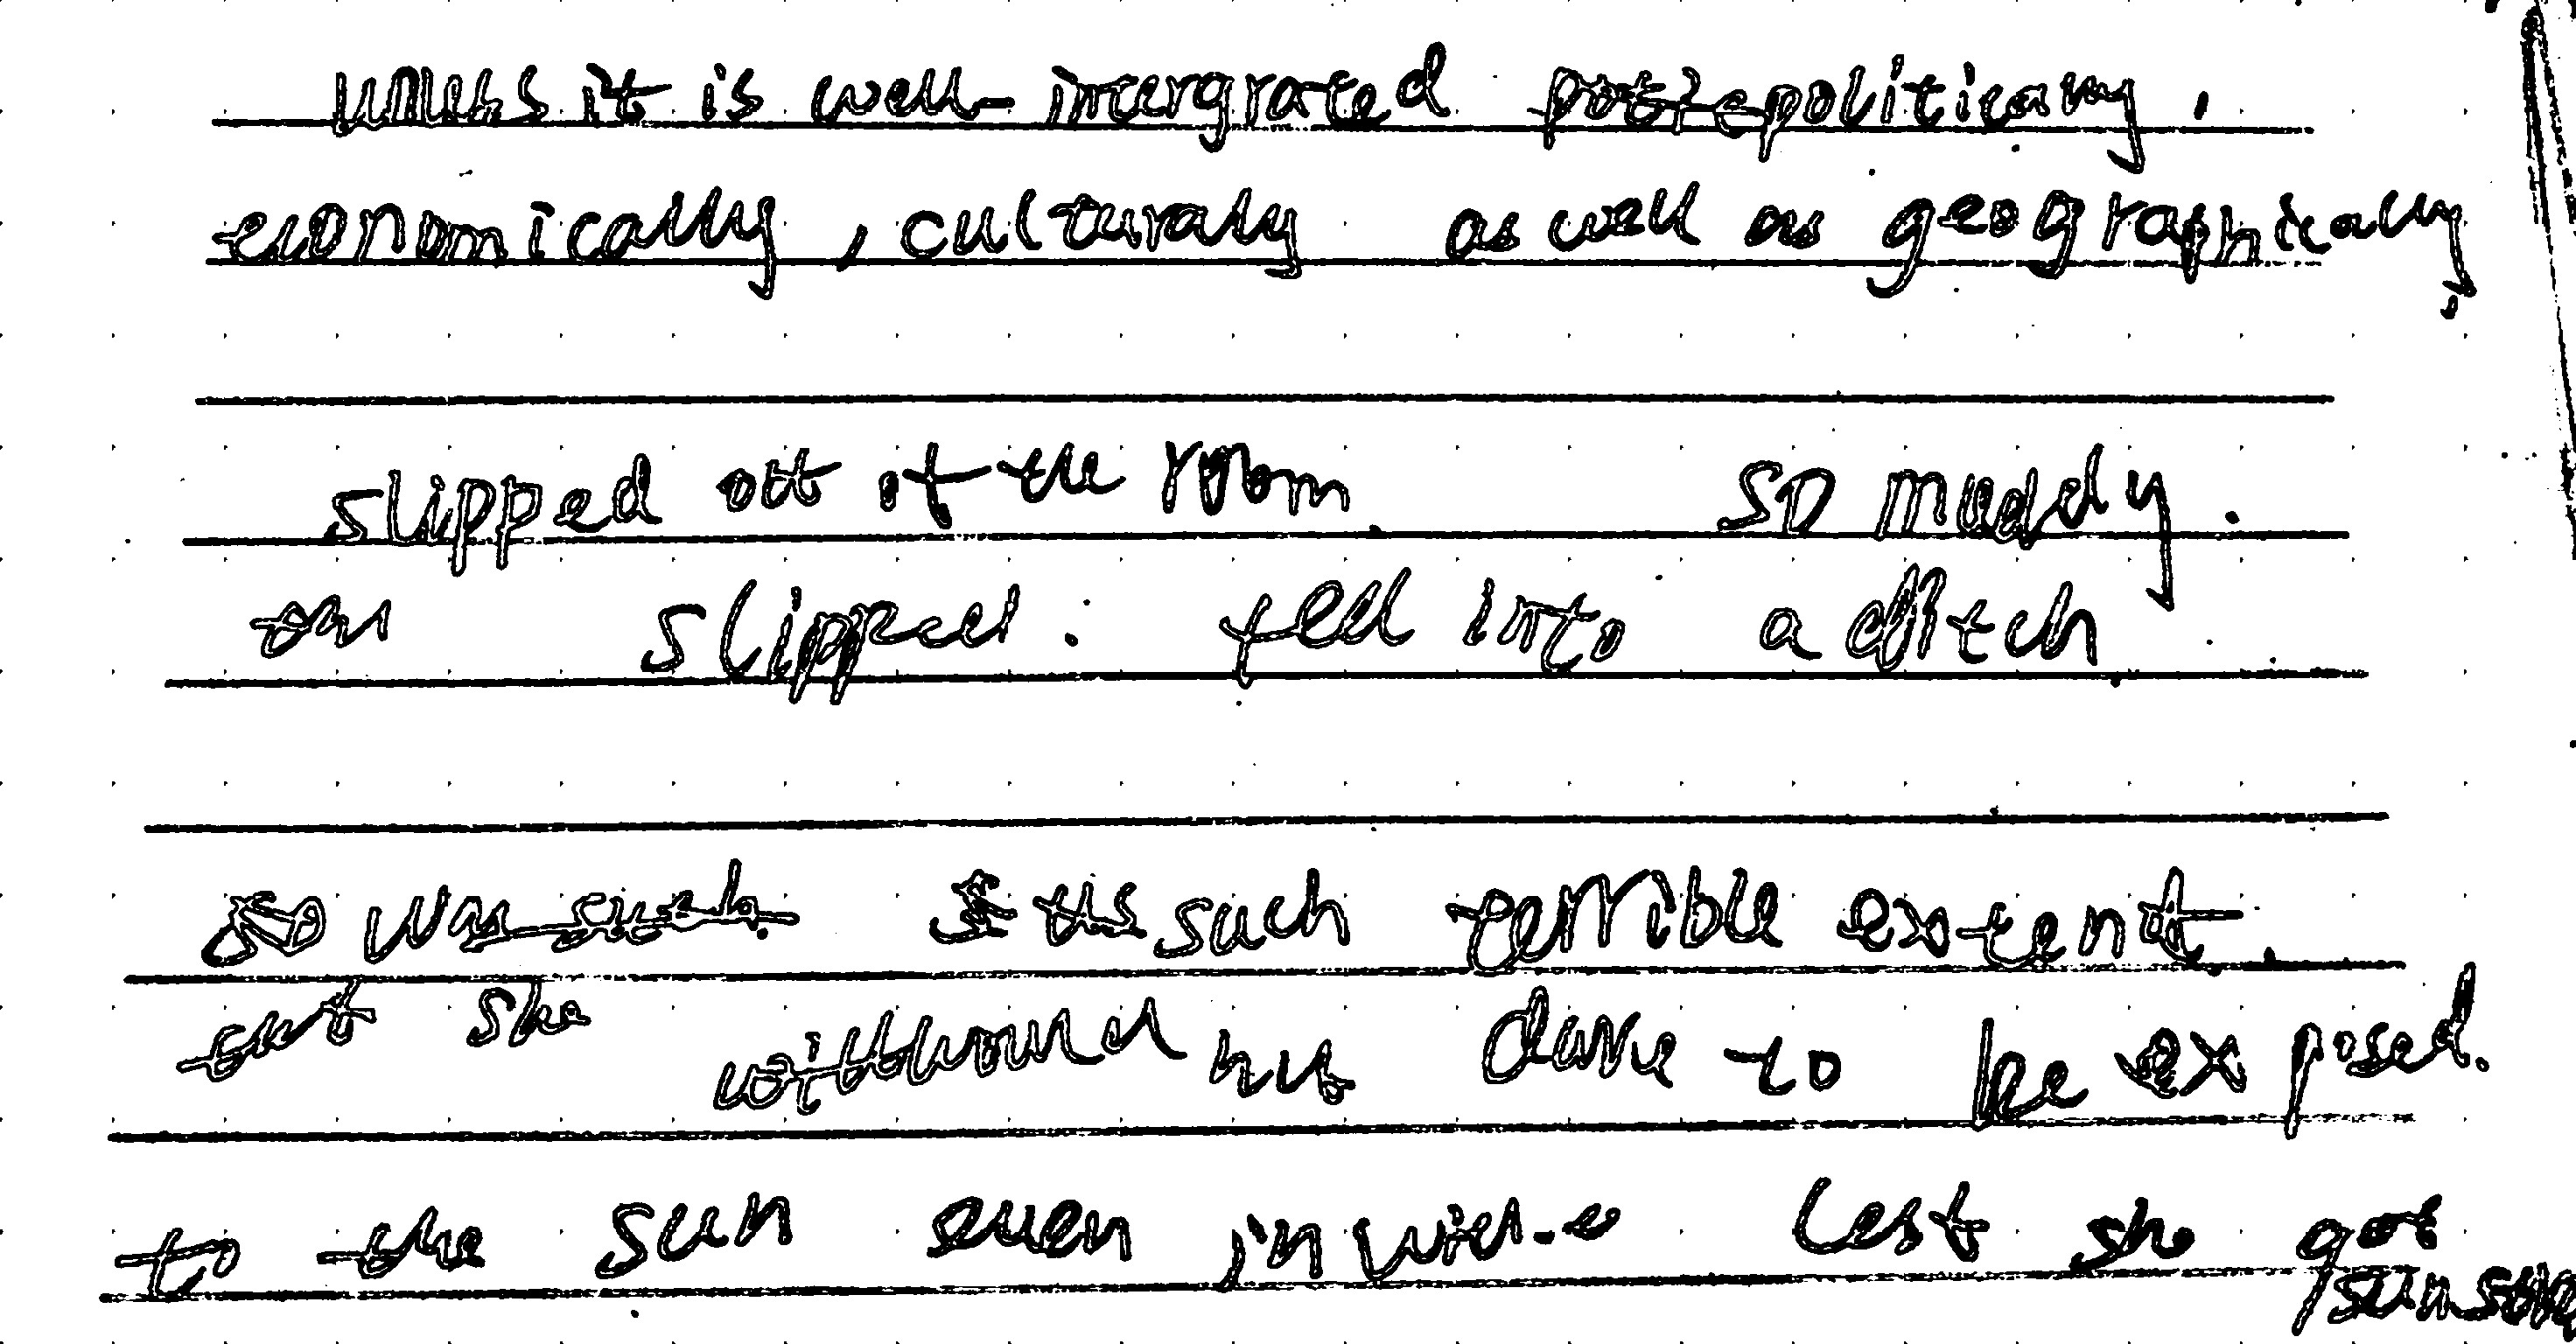 unless it is well-intergrated politically,
economically, culturally as well as geographically,
slipped out of the room. so muddy.
slipped. fell into a ditch
such terrible extent.
that she would not dare to be exposed.
to the sun even in lest she got